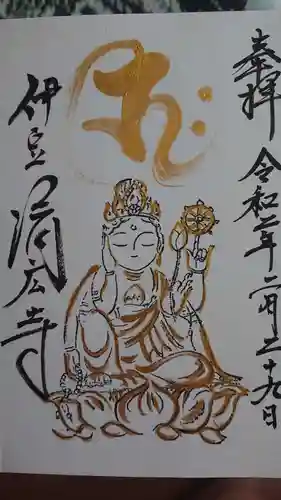 奉拝
令和二年二月二十九日
伊豆
済広寺